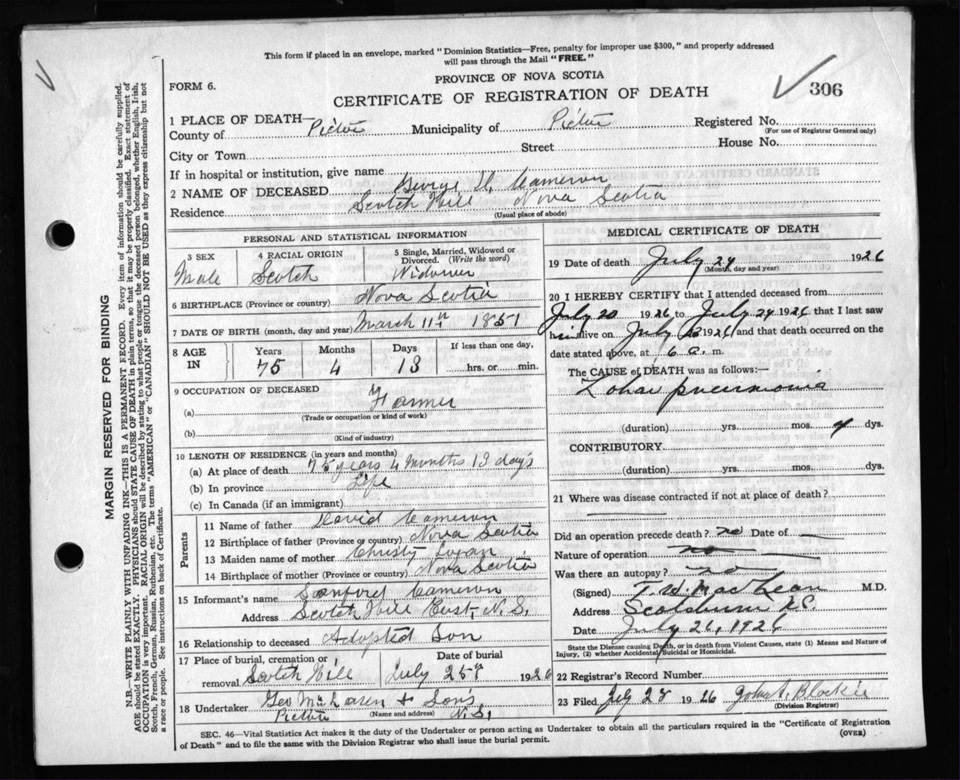 This form if placed in an envelope, marked "Dominion Statistics—Free, penalty for improper use $300," and properly addressed
will pass through the Mail "FREE."
PROVINCE OF NOVA SCOTIA
FORM 6.
CERTIFICATE OF REGISTRATION OF DEATH
306
1 PLACE OF DEATH—
County of Pictou Municipality of Pictou Registered No.
(For use of Registrar General only)
City or Town Street House No.
If in hospital or institution, give name
2 NAME OF DECEASED George H. Cameron
Residence Scotch Hill Nova Scotia
(Usual place of abode)
PERSONAL AND STATISTICAL INFORMATION
3 SEX 4 RACIAL ORIGIN 5 Single, Married, Widowed or Divorced. (Write the word)
Male Scotch Widower
6 BIRTHPLACE (Province or country) Nova Scotia
7 DATE OF BIRTH (month, day and year) March 11th 1851
8 AGE IN Years Months Days If less than one day,
75 4 13 hrs. or min.
9 OCCUPATION OF DECEASED
(a) Farmer
(Trade or occupation or kind of work)
(b)
(Kind of industry)
10 LENGTH OF RESIDENCE (in years and months)
(a) At place of death 75 years 4 months 13 days
(b) In province Life
(c) In Canada (if an immigrant)
Parents
11 Name of father David Cameron
12 Birthplace of father (Province or country) Nova Scotia
13 Maiden name of mother Christy Logan
14 Birthplace of mother (Province or country) Nova Scotia
15 Informant's name Sanford Cameron
Address Scotch Hill East, N.S.
16 Relationship to deceased Adopted Son
17 Place of burial, cremation or removal Date of burial
Scotch Hill July 25th 1926
18 Undertaker Geo McLaren & Sons
Pictou (Name and address) N.S.
MEDICAL CERTIFICATE OF DEATH
19 Date of death July 24 1926
(Month, day and year)
20 I HEREBY CERTIFY that I attended deceased from
July 20 1926 to July 24 1926 that I last saw
him alive on July 23 1926 and that death occurred on the
date stated above, at 6 a. m.
The CAUSE of DEATH was as follows:—
Lobar pneumonia
(duration) yrs. mos. 4 dys.
CONTRIBUTORY
(duration) yrs. mos. dys.
21 Where was disease contracted if not at place of death?
Did an operation precede death? no Date of —
Nature of operation no
Was there an autopsy? no
(Signed) T. W. MacLean M.D.
Address Scotsburn N.S.
Date July 26, 1926
State the Disease causing Death, or in death from Violent Causes, state (1) Means and Nature of
Injury, (2) whether Accidental, Suicidal or Homicidal.
22 Registrar's Record Number
23 Filed July 28 1926 John A. Blackie
(Division Registrar)
SEC. 46—Vital Statistics Act makes it the duty of the Undertaker or person acting as Undertaker to obtain all the particulars required in the "Certificate of Registration
of Death" and to file the same with the Division Registrar who shall issue the burial permit.
(OVER)
MARGIN RESERVED FOR BINDING
N.B—WRITE PLAINLY WITH UNFADING INK—THIS IS A PERMANENT RECORD. Every item of information should be carefully supplied.
AGE should be stated EXACTLY. PHYSICIANS should STATE CAUSE OF DEATH in plain terms, so that it may be properly classified. Exact statement of
OCCUPATION is very important. RACIAL ORIGIN will be described by stating to what people or tongue the deceased person belonged, whether English, Irish,
Scotch, French, German, Russian, Ruthenian, etc. The terms "AMERICAN" or "CANADIAN" SHOULD NOT BE USED as they express citizenship but not
a race or people. See instructions on back of Certificate.